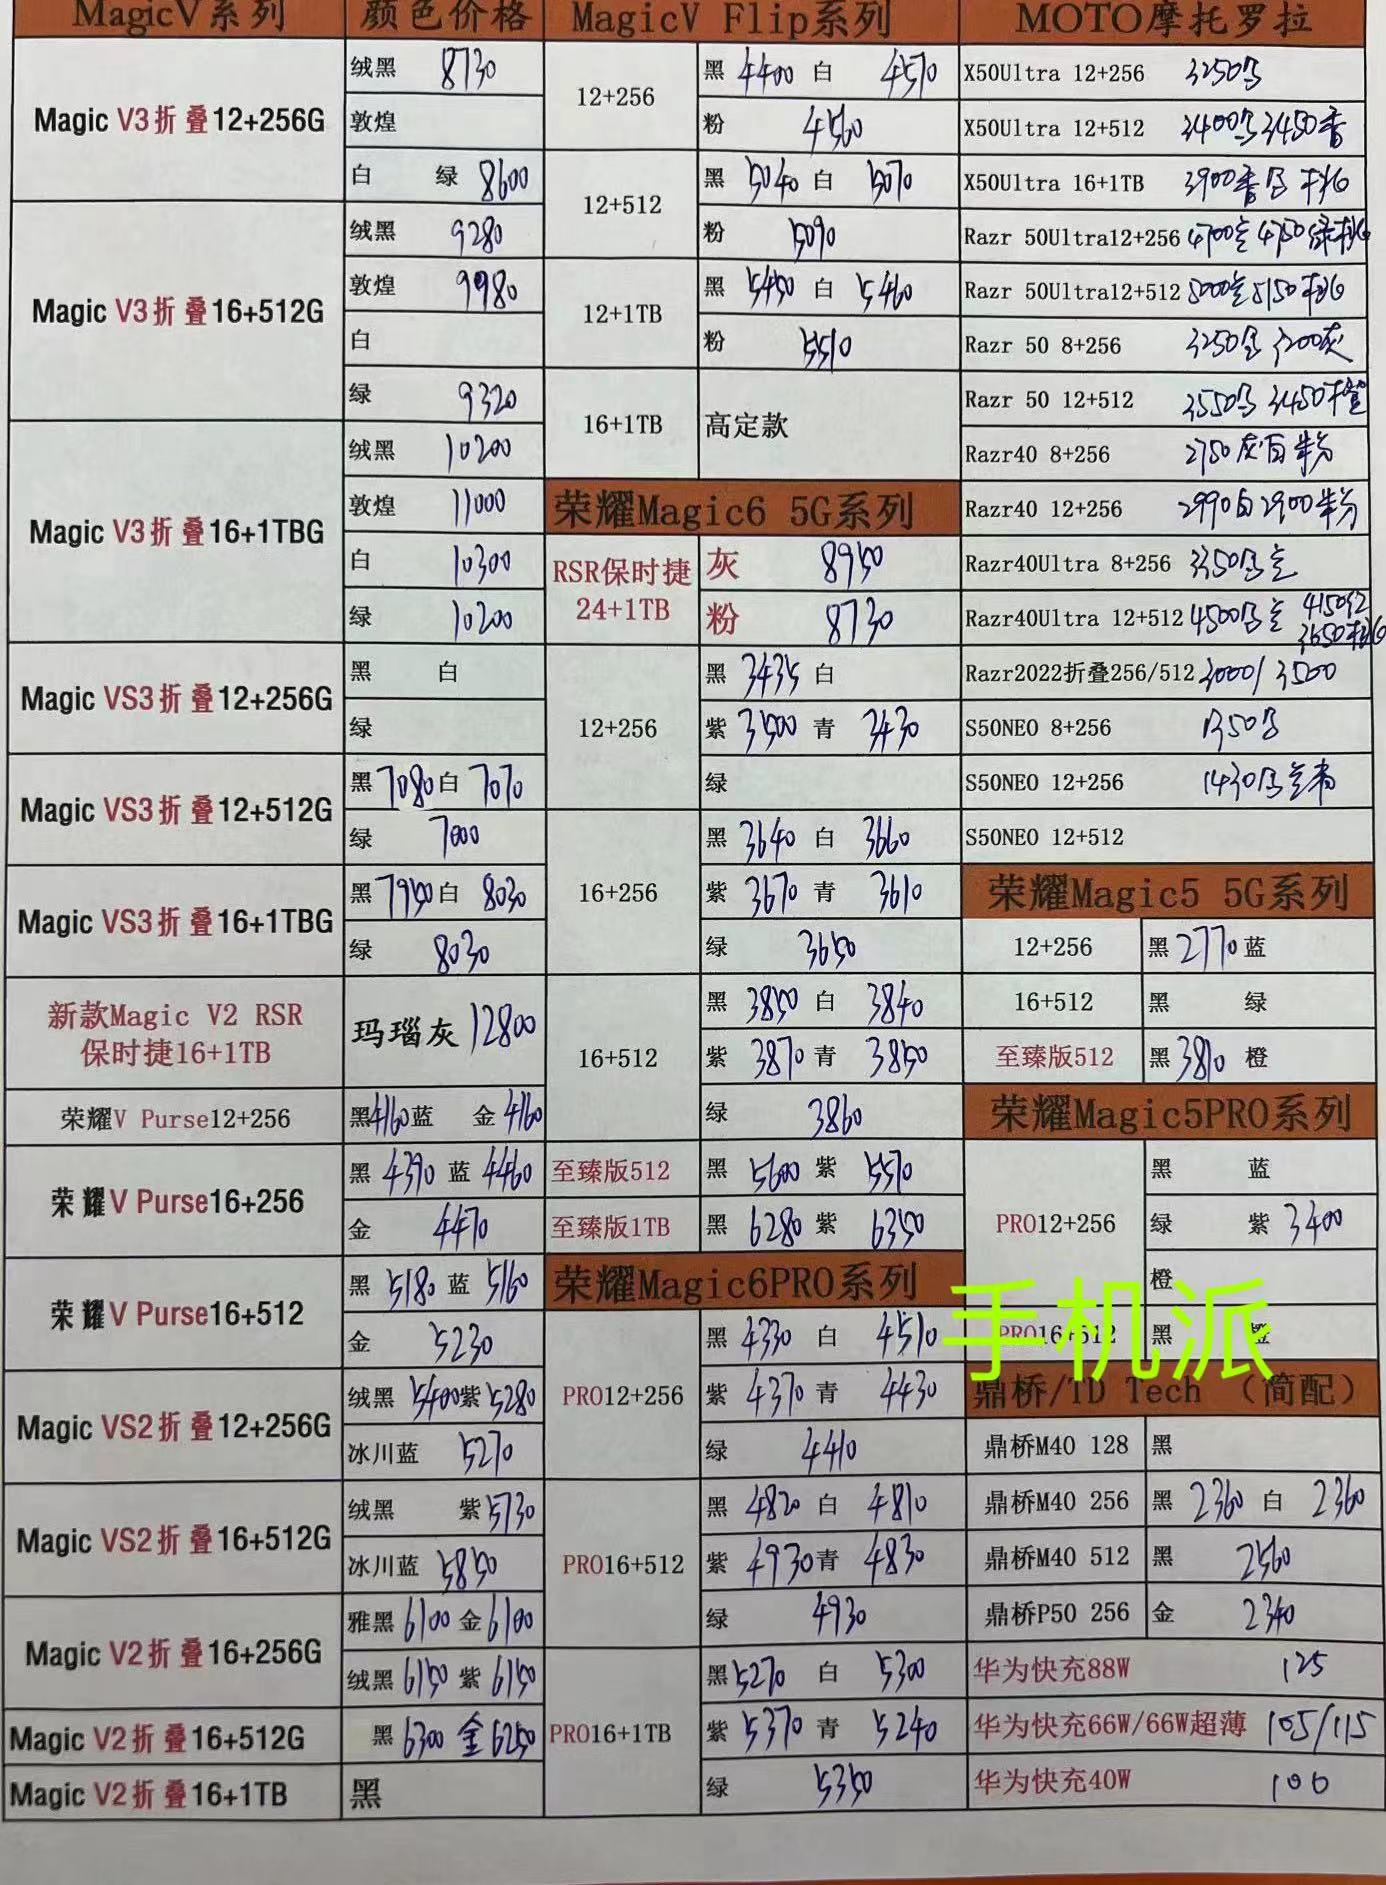 MagicV系列
颜色价格
Magic V3折叠12+256G
绒黑 8730
敦煌
白 绿 8600
Magic V3折叠16+512G
绒黑 9280
敦煌 9980
白
绿 9320
Magic V3折叠16+1TBG
绒黑 10200
敦煌 11000
白 10300
绿 10200
Magic VS3折叠12+256G
黑 白
绿
Magic VS3折叠12+512G
黑 7080 白 7070
绿 7000
Magic VS3折叠16+1TBG
黑 7950 白 8030
绿 8030
新款Magic V2 RSR
保时捷16+1TB
玛瑙灰 12800
荣耀V Purse12+256
黑 4160 蓝 金 4160
荣耀V Purse16+256
黑 4390 蓝 4460
金 4470
荣耀V Purse16+512
黑 5180 蓝 5160
金 5230
Magic VS2折叠12+256G
绒黑 5400 紫 5280
冰川蓝 5270
Magic VS2折叠16+512G
绒黑 紫 5730
冰川蓝 5850
Magic V2折叠16+256G
雅黑 6100 金 6100
绒黑 6150 紫 6150
Magic V2折叠16+512G
黑 6300 金 6250
Magic V2折叠16+1TB
黑
MagicV Flip系列
12+256
黑 4400 白 4570
粉 4560
12+512
黑 5040 白 5070
粉 5090
12+1TB
黑 5450 白 5460
粉 5510
16+1TB
高定款
荣耀Magic6 5G系列
RSR保时捷
24+1TB
灰 8950
粉 8730
12+256
黑 3435 白
紫 3500 青 3430
绿
16+256
黑 3640 白 3660
紫 3670 青 3610
绿 3650
16+512
黑 3850 白 3840
紫 3870 青 3850
绿 3860
至臻版512
黑 5600 紫 5570
至臻版1TB
黑 6280 紫 6350
荣耀Magic6PRO系列
PRO12+256
黑 4330 白 4510
紫 4370 青 4430
绿 4410
PRO16+512
黑 4820 白 4810
紫 4930 青 4830
绿 4930
PRO16+1TB
黑 5270 白 5300
紫 5370 青 5240
绿 5350
MOTO摩托罗拉
X50Ultra 12+256 3250
X50Ultra 12+512 3400 3450
X50Ultra 16+1TB 3900
Razr 50Ultra12+256 4700 4750绿
Razr 50Ultra12+512 5000 5150
Razr 50 8+256 3250 3200灰
Razr 50 12+512 3550 3450
Razr40 8+256 2750灰白粉
Razr40 12+256 2990白2900粉
Razr40Ultra 8+256 3350
Razr40Ultra 12+512 4500 4150红
3650
Razr2022折叠256/512 3000/3500
S50NEO 8+256 1350
S50NEO 12+256 1430
S50NEO 12+512
荣耀Magic5 5G系列
12+256
黑 2770 蓝
16+512
黑 绿
至臻版512
黑 3810 橙
荣耀Magic5PRO系列
PRO12+256
黑 蓝
绿 紫 3400
橙
PRO16+512
黑 橙
手机派
鼎桥/TD Tech （简配）
鼎桥M40 128 黑
鼎桥M40 256 黑 2360 白 2360
鼎桥M40 512 黑 2560
鼎桥P50 256 金 2340
华为快充88W 125
华为快充66W/66W超薄 105/115
华为快充40W 100